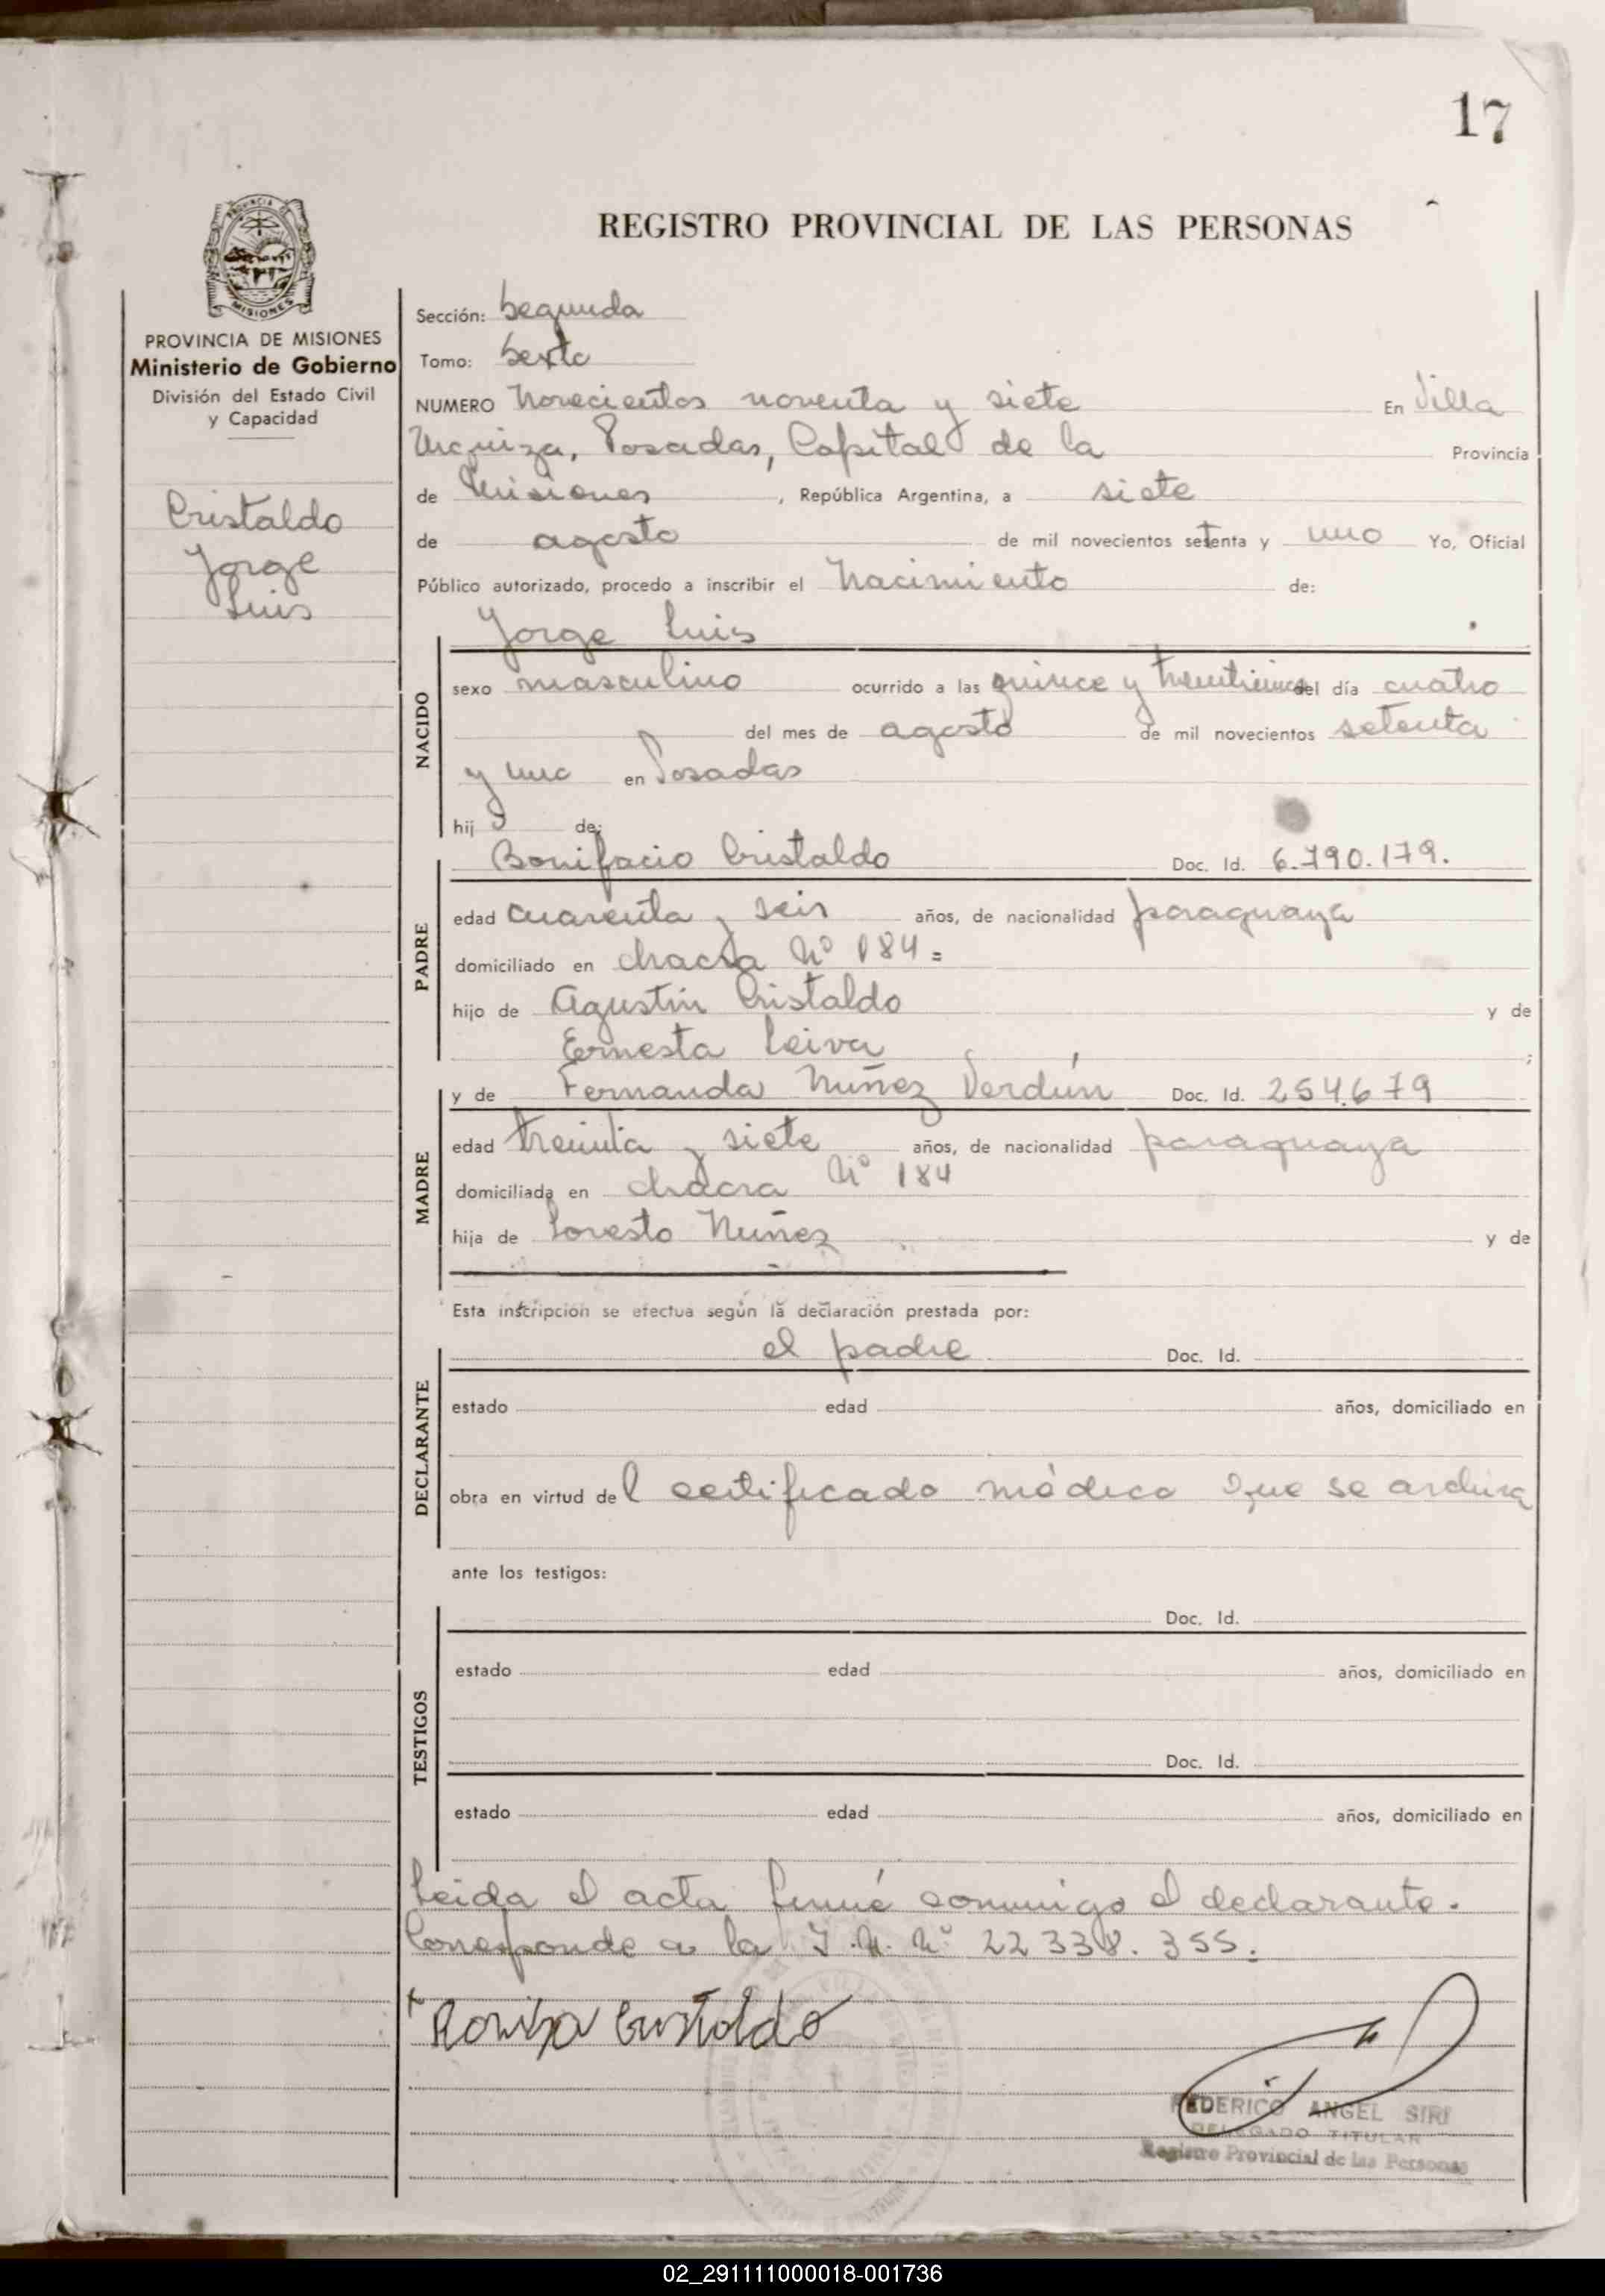 17
REGISTRO PROVINCIAL DE LAS PERSONAS
PROVINCIA DE
MISIONES
PROVINCIA DE MISIONES
Ministerio de Gobierno
División del Estado Civil
y Capacidad
Cristaldo
Jorge
Luis
Sección: Segunda
Tomo: Sexto
NUMERO Novecientos noventa y siete En Villa
Urquiza, Posadas, Capital de la Provincia
de Misiones, República Argentina, a siete
de agosto de mil novecientos setenta y uno Yo, Oficial
Público autorizado, procedo a inscribir el Nacimiento de:
Jorge Luis
NACIDO
sexo masculino ocurrido a las quince y del día cuatro
del mes de agosto de mil novecientos setenta
y uno en Posadas
hijo de:
PADRE
Bonifacio Cristaldo Doc. Id. 6.790.179.
edad cuarenta y seis años, de nacionalidad paraguaya
domiciliado en chacra Nº 184=
hijo de Agustín Cristaldo y de
Ernesta Leiva;
MADRE
y de Fernanda Nuñez Verdún Doc. Id. 254.679
edad treinta y siete años, de nacionalidad paraguaya
domiciliada en chacra Nº 184
hija de Loresto Nuñez y de
Esta inscripción se efectua según la declaración prestada por:
DECLARANTE
el padre Doc. Id.
estado edad años, domiciliado en
obra en virtud del certificado médico que se archiva
ante los testigos:
TESTIGOS
Doc. Id.
estado edad años, domiciliado en
Doc. Id.
estado edad años, domiciliado en
Leida el acta firmé conmigo el declarante.
Corresponde a la Nº 22 338. 355.
Cristaldo
FEDERICO ANGEL SIRI
DELEGADO TITULAR
Registro Provincial de las Personas
02_291111000018-001736